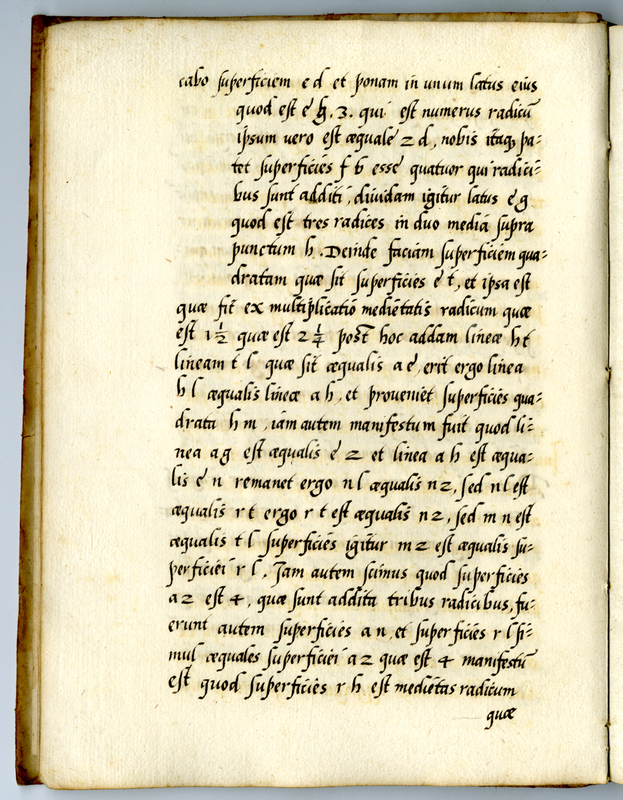 cabo superficiem e d et ponam in unum latus eius
quod est é g. 3. qui est numerus radicū
ipsum vero est æquale z d, nobis itaq; pa-
tet superficiés f b essé quatuor qui radici-
bus sunt additi, diuidam igitur latus é g
quod est tres radices in duo media supra
punctum h. Deinde faciam superficiem qua-
dratam quæ sit superficies é t, et ipsa est
quæ fit ex multiplicatió medietatis radicum quæ
est 1 1/2 quæ est 2 1/4 post hoc addam lineæ h t
lineam t l quæ sit æqualis a é, erit ergo linea
h l æqualis lineæ a h, et proueniet superficiés qua-
drata h m, iam autem manifestum fuit quod li-
nea a g est æqualis é z et linea a h est æqua-
lis é n remanet ergo n l æqualis n z, sed n l est
æqualis r t ergo r t est æqualis n z, sed m n est
æqualis t l superficiés igitur m z est æqualis su-
perficiei r l. Jam autem scimus quod superficiés
a z est 4, quæ sunt addita tribus radicibus, fu-
erunt autem superficiés a n, et superficiés r l si-
mul æquales superficiei a z quæ est 4 manifestū
est quod superficiés r h est medietas radicum
quæ